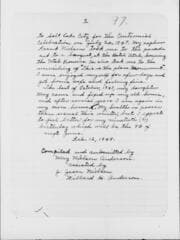 2
77.
to Salt Lake City for the Centennial
Celebration on July 24, 1947. My nephew
took me to the parade
and to a banquet, at the Hotel Utah, honoring
the Utah Pioneers. He also took me to the
unveiling of "This is the place Monument".
I sure enjoyed myself for
got home safe and feeling
The last of October, 1947, my daughter
Mary came and fixed up my old home,
and after several years I am again in
my own home. My health is poorer
than usual this winter, but I expect
to feel better for my ninetieth
birthday which will be the 18 of
next June.
Feb. 12, 1948.
Compiled and submitted by
Mary Nielsen Anderson.
Assisted by
J. Jean Nielsen
Millard H. Anderson.